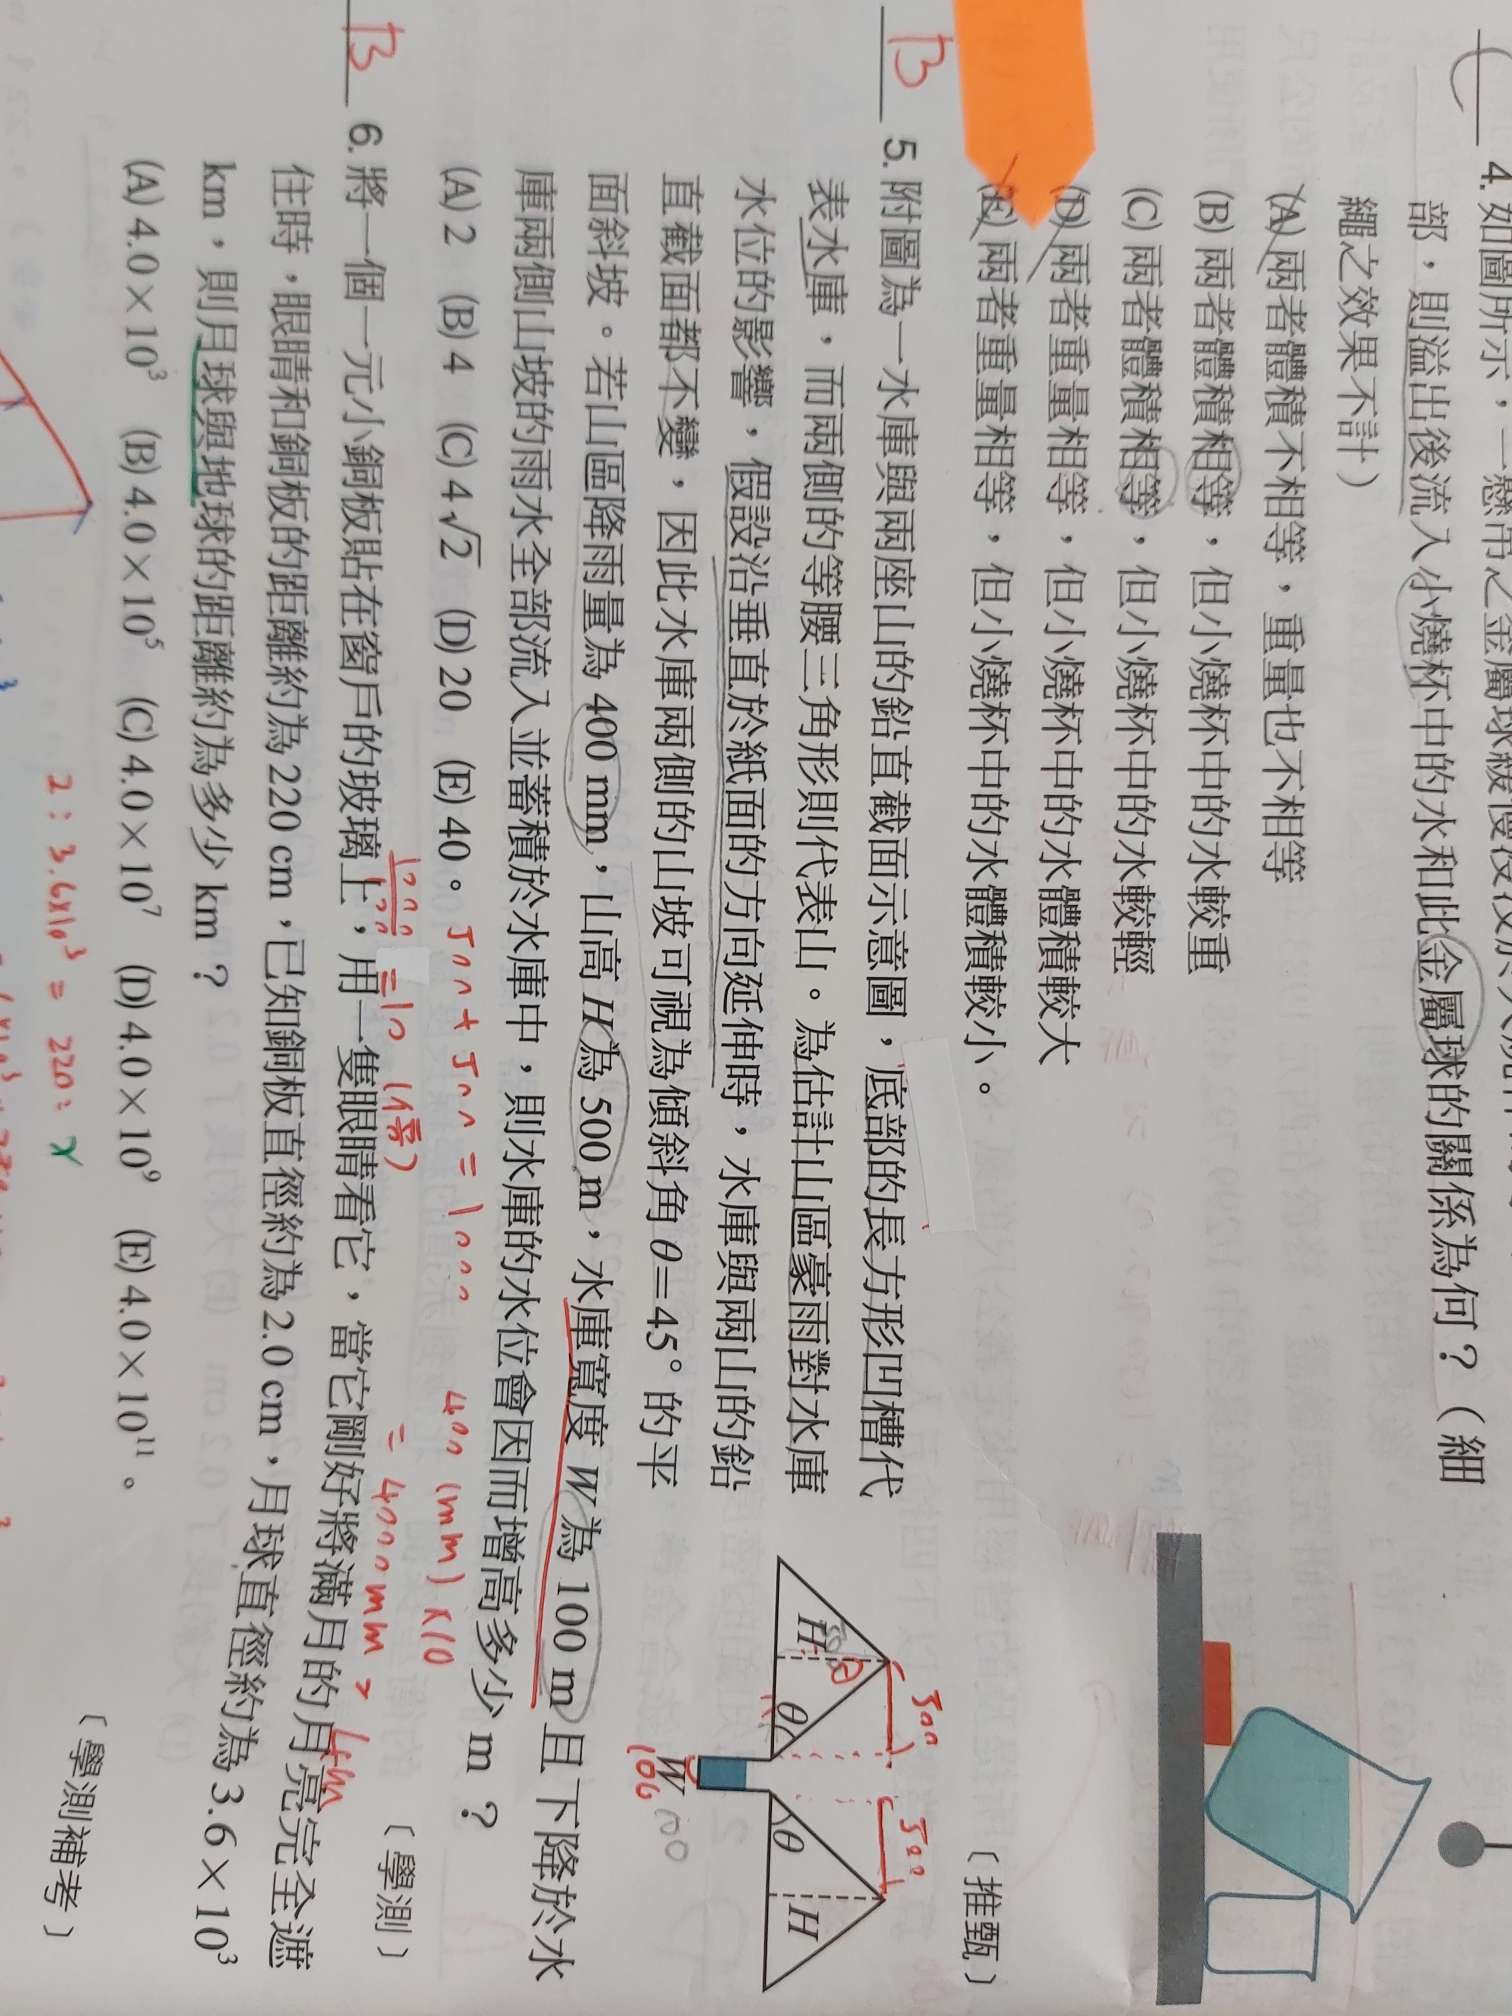 4. 如圖所示,一懸吊之金屬球緩慢
部,則溢出後流入小燒杯中的水和此金屬球的關係為何?(細
繩之效果不計)
(A) 兩者體積不相等,重量也不相等
(B) 兩者體積相等,但小燒杯中的水較重
(C) 兩者體積相等,但小燒杯中的水較輕
(D) 兩者重量相等,但小燒杯中的水體積較大
(E) 兩者重量相等,但小燒杯中的水體積較小。
〔推甄〕
B 5. 附圖為一水庫與兩座山的鉛直截面示意圖,底部的長方形凹槽代
表水庫,而兩側的等腰三角形則代表山。為估計山區豪雨對水庫
水位的影響,假設沿垂直於紙面的方向延伸時,水庫與兩山的鉛
直截面都不變,因此水庫兩側的山坡可視為傾斜角 θ=45° 的平
面斜坡。若山區降雨量為 400 mm,山高 H 為 500 m,水庫寬度 W 為 100 m 且下降於水
庫兩側山坡的雨水全部流入並蓄積於水庫中,則水庫的水位會因而增高多少 m?
(A) 2 (B) 4 (C) 4√2 (D) 20 (E) 40。
〔學測〕
500
500
H
θ
θ
H
W
100
100
500+500=1000
1000/100=10(倍)
400(mm)×10
=4000mm
B 6. 將一個一元小銅板貼在窗戶的玻璃上,用一隻眼睛看它,當它剛好將滿月的月亮完全遮
住時,眼睛和銅板的距離約為 220 cm,已知銅板直徑約為 2.0 cm,月球直徑約為 3.6×10³
km,則月球與地球的距離約為多少 km?
(A) 4.0×10³ (B) 4.0×10⁵ (C) 4.0×10⁷ (D) 4.0×10⁹ (E) 4.0×10¹¹。
〔學測補考〕
2:3.6×10³=220:x